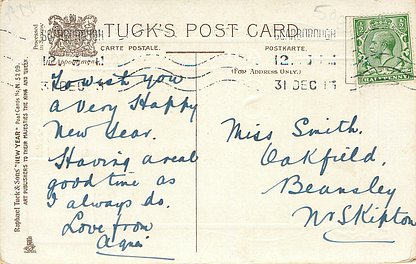 TUCK'S POST CARD
CARTE POSTALE.
POSTKARTE.
(FOR ADDRESS ONLY.)
31 DEC 13
HALFPENNY
Raphael Tuck & Sons' "NEW YEAR" Post Card
ART PUBLISHERS TO THEIR MAJESTIES THE KING AND QUEEN.
To wish you
a very Happy
New Year.
Having a real
good time as
I always do.
Love from
Agnes
Miss Smith.
Oakfield,
Beamsley
Nr Skipton